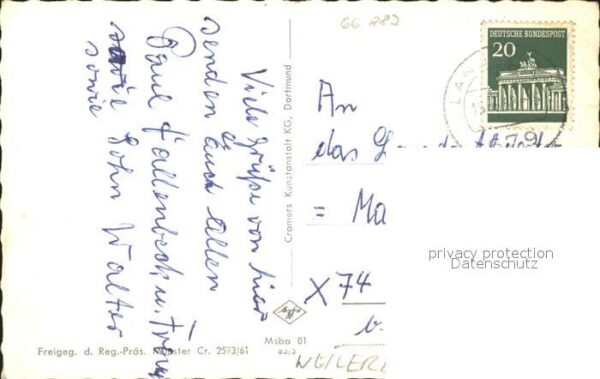 66 882
DEUTSCHE BUNDESPOST
20
LAN
Viele Grüße von hier
senden Euch allen
Paul Fallenbeck u. Frau
sowie
sowie Sohn Walter
Cramers Kunstanstalt KG, Dortmund
An
das
= Ma
privacy protection
Datenschutz
X 74
b.
WEILER
Msba 01
Freigeg. d. Reg.-Präs. Münster Cr. 2573/61